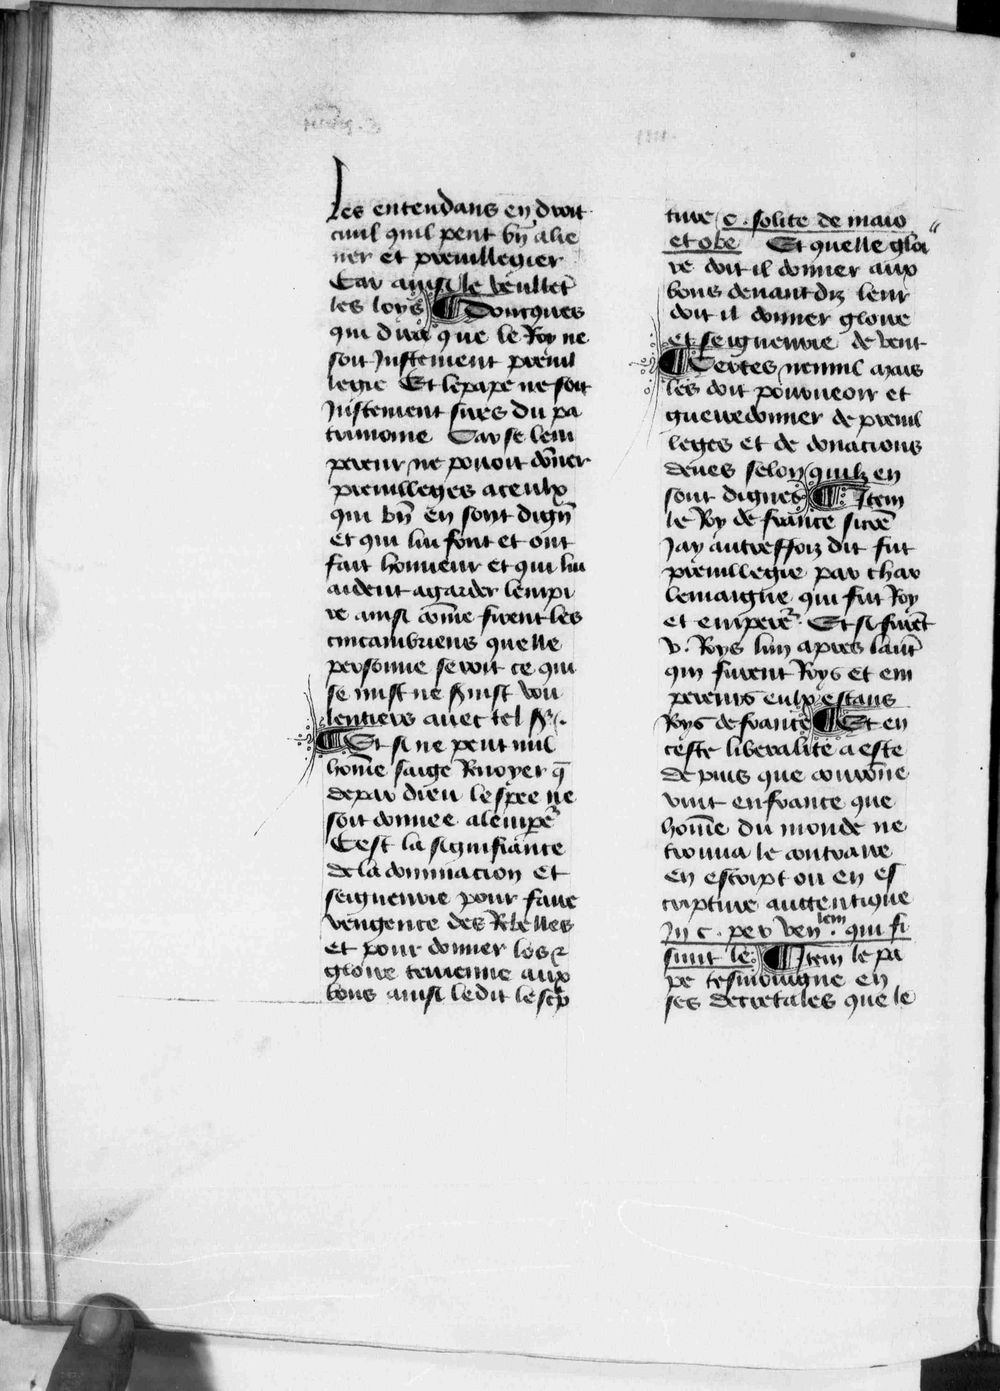 Les entendans en droit
ciuil quil peut bn̄ alie
ner et preuillegier
Car ainsi le veullet
les loys ¶ Doncques
qui dira que le Roy ne
soit Justement preuil
legie Et le pape ne soit
Justement sires du pa
trimoine Car se lem
pereur ne pouoit dōner
preuilleges a ceulx
qui bn̄ en sont dign̄
et qui lui font et ont
fait honneur et qui lui
aident a garder lempi
re ainsi cōme firent les
cincambriens quelle
personne seroit ce qui
se mist ne fmist vou
lentiers auec tel sr̄.
¶ Et si ne peut nul
hōme saige Ruoyer q̄
de par dieu lespee ne
soit donnee a lemper
Cest la signifiance
de la dominacion et
seigneurie pour faire
vengence des Rebelles
et pour donner los ⁊
gloire terrienne aux
bons ainsi le dit lescp
ture / c. solite de maio
et obe Et quelle gloi
re doit il donner aux
bons deuant diz leur
doit il donner gloire
et seigneurie de vent
¶ Certes nennil mais
les doit pourueoir et
guerredonner de preuil
leges et de donacions
deues selon quilz en
sont dignes ¶ Item
le Roy de france sicōe
Jay autreffoiz dit fut
preuillegie par char
lemaigne qui fut Roy
et emper. Et si furēt
v. Roys lun apres laut
qui furent Roys et em
pereurs eulx estans
Roys de france ¶ Et en
ceste liberalite a este
depuis que courōne
vint en france que
hōme du monde ne
trouua le contraire
en escript ou en es
cripture auctentique
In c. per venlem. qui fi
sunt le. ¶ Item le pa
pe tesmoingne en
ses decretales que le